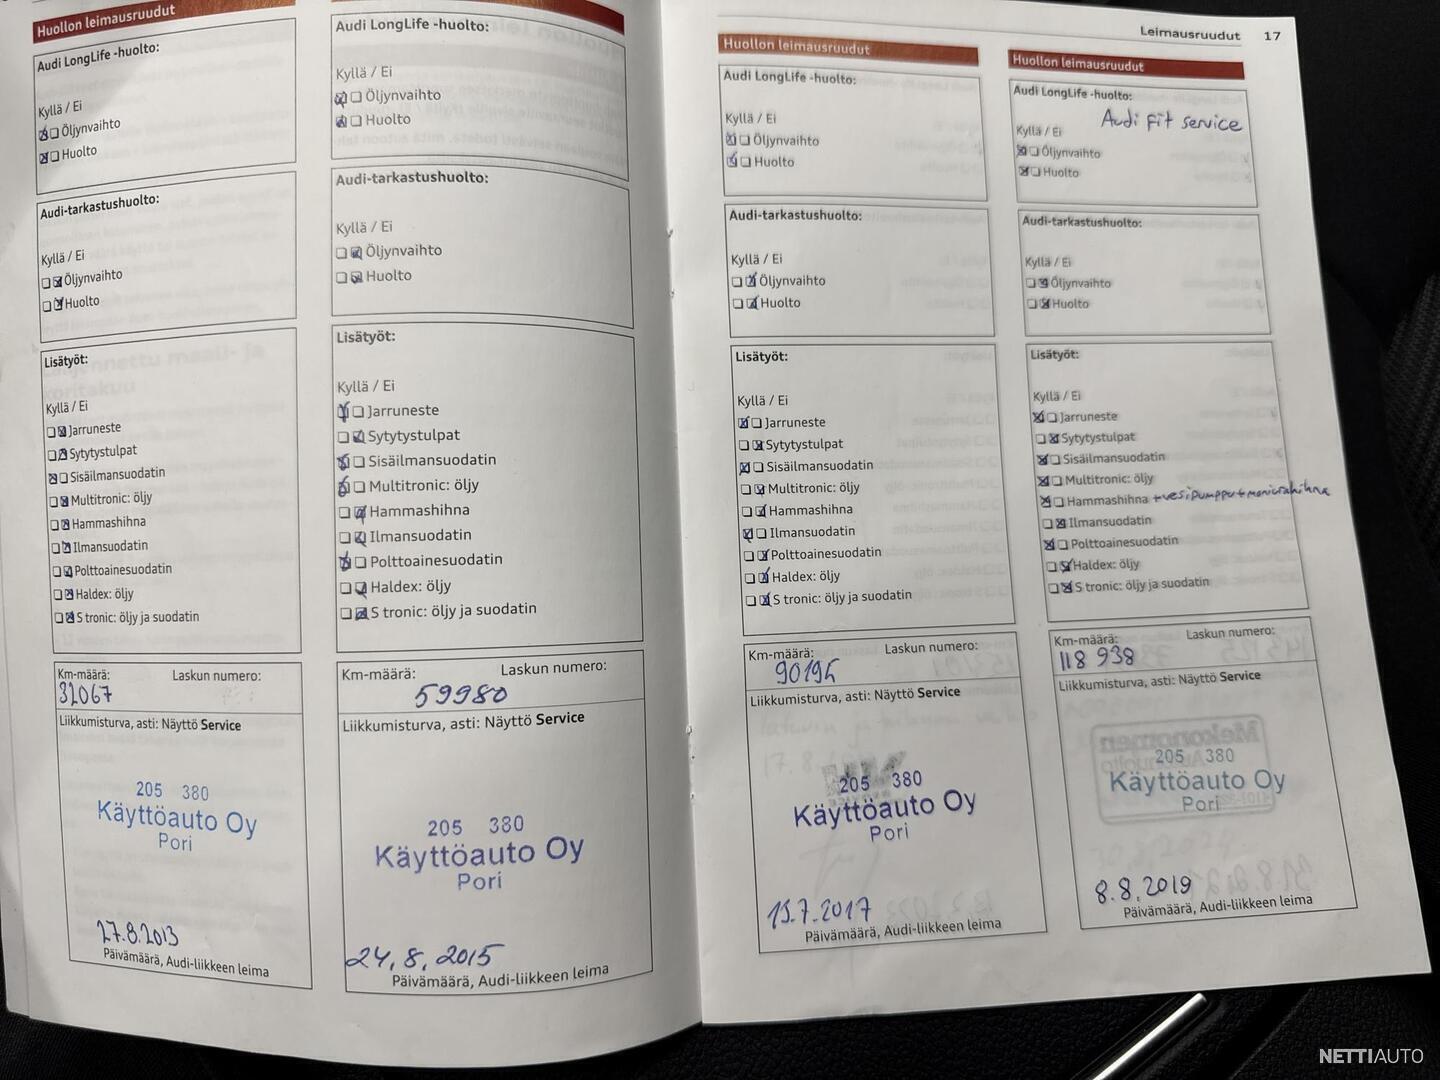 Huollon leimausruudut
Audi LongLife -huolto:
Kyllä / Ei
Öljynvaihto
Huolto
Audi-tarkastushuolto:
Kyllä / Ei
Öljynvaihto
Huolto
Lisätyöt:
Kyllä / Ei
Jarruneste
Sytytystulpat
Sisäilmansuodatin
Multitronic: öljy
Hammashihna
Ilmansuodatin
Polttoainesuodatin
Haldex: öljy
S tronic: öljy ja suodatin
Km-määrä: Laskun numero:
32067
Liikkumisturva, asti: Näyttö Service
205 380
Käyttöauto Oy
Pori
27.8.2013
Päivämäärä, Audi-liikkeen leima
Audi LongLife -huolto:
Kyllä / Ei
Öljynvaihto
Huolto
Audi-tarkastushuolto:
Kyllä / Ei
Öljynvaihto
Huolto
Lisätyöt:
Kyllä / Ei
Jarruneste
Sytytystulpat
Sisäilmansuodatin
Multitronic: öljy
Hammashihna
Ilmansuodatin
Polttoainesuodatin
Haldex: öljy
S tronic: öljy ja suodatin
Km-määrä: Laskun numero:
59980
Liikkumisturva, asti: Näyttö Service
205 380
Käyttöauto Oy
Pori
24.8.2015
Päivämäärä, Audi-liikkeen leima
Leimausruudut 17
Huollon leimausruudut
Audi LongLife -huolto:
Kyllä / Ei
Öljynvaihto
Huolto
Audi-tarkastushuolto:
Kyllä / Ei
Öljynvaihto
Huolto
Lisätyöt:
Kyllä / Ei
Jarruneste
Sytytystulpat
Sisäilmansuodatin
Multitronic: öljy
Hammashihna
Ilmansuodatin
Polttoainesuodatin
Haldex: öljy
S tronic: öljy ja suodatin
Km-määrä: Laskun numero:
90195
Liikkumisturva, asti: Näyttö Service
205 380
Käyttöauto Oy
Pori
Päivämäärä, Audi-liikkeen leima
Huollon leimausruudut
Audi LongLife -huolto:
Audi fit service
Kyllä / Ei
Öljynvaihto
Huolto
Audi-tarkastushuolto:
Kyllä / Ei
Öljynvaihto
Huolto
Lisätyöt:
Kyllä / Ei
Jarruneste
Sytytystulpat
Sisäilmansuodatin
Multitronic: öljy
Hammashihna +vesipumppu+monirahihna
Ilmansuodatin
Polttoainesuodatin
Haldex: öljy
S tronic: öljy ja suodatin
Km-määrä: Laskun numero:
118 938
Liikkumisturva, asti: Näyttö Service
205 380
Käyttöauto Oy
Pori
8.8.2019
Päivämäärä, Audi-liikkeen leima
NETTIAUTO